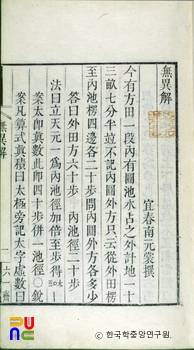 無異解
宜春南元裳撰
今有方田一段內有圓池水占之外計地一十
三畝七分半並不記內圓外方只云從外田楞
至內池楞四邊各二十步問內圓外方各多少
答曰外田方六十步 內池徑二十步
法曰立天元一爲內池徑加倍至步得
案太卽眞數此卽四十步併一池徑〇說
案凡算式眞積曰太極旁記太字虛數曰
無異解
© 한국학중앙연구원